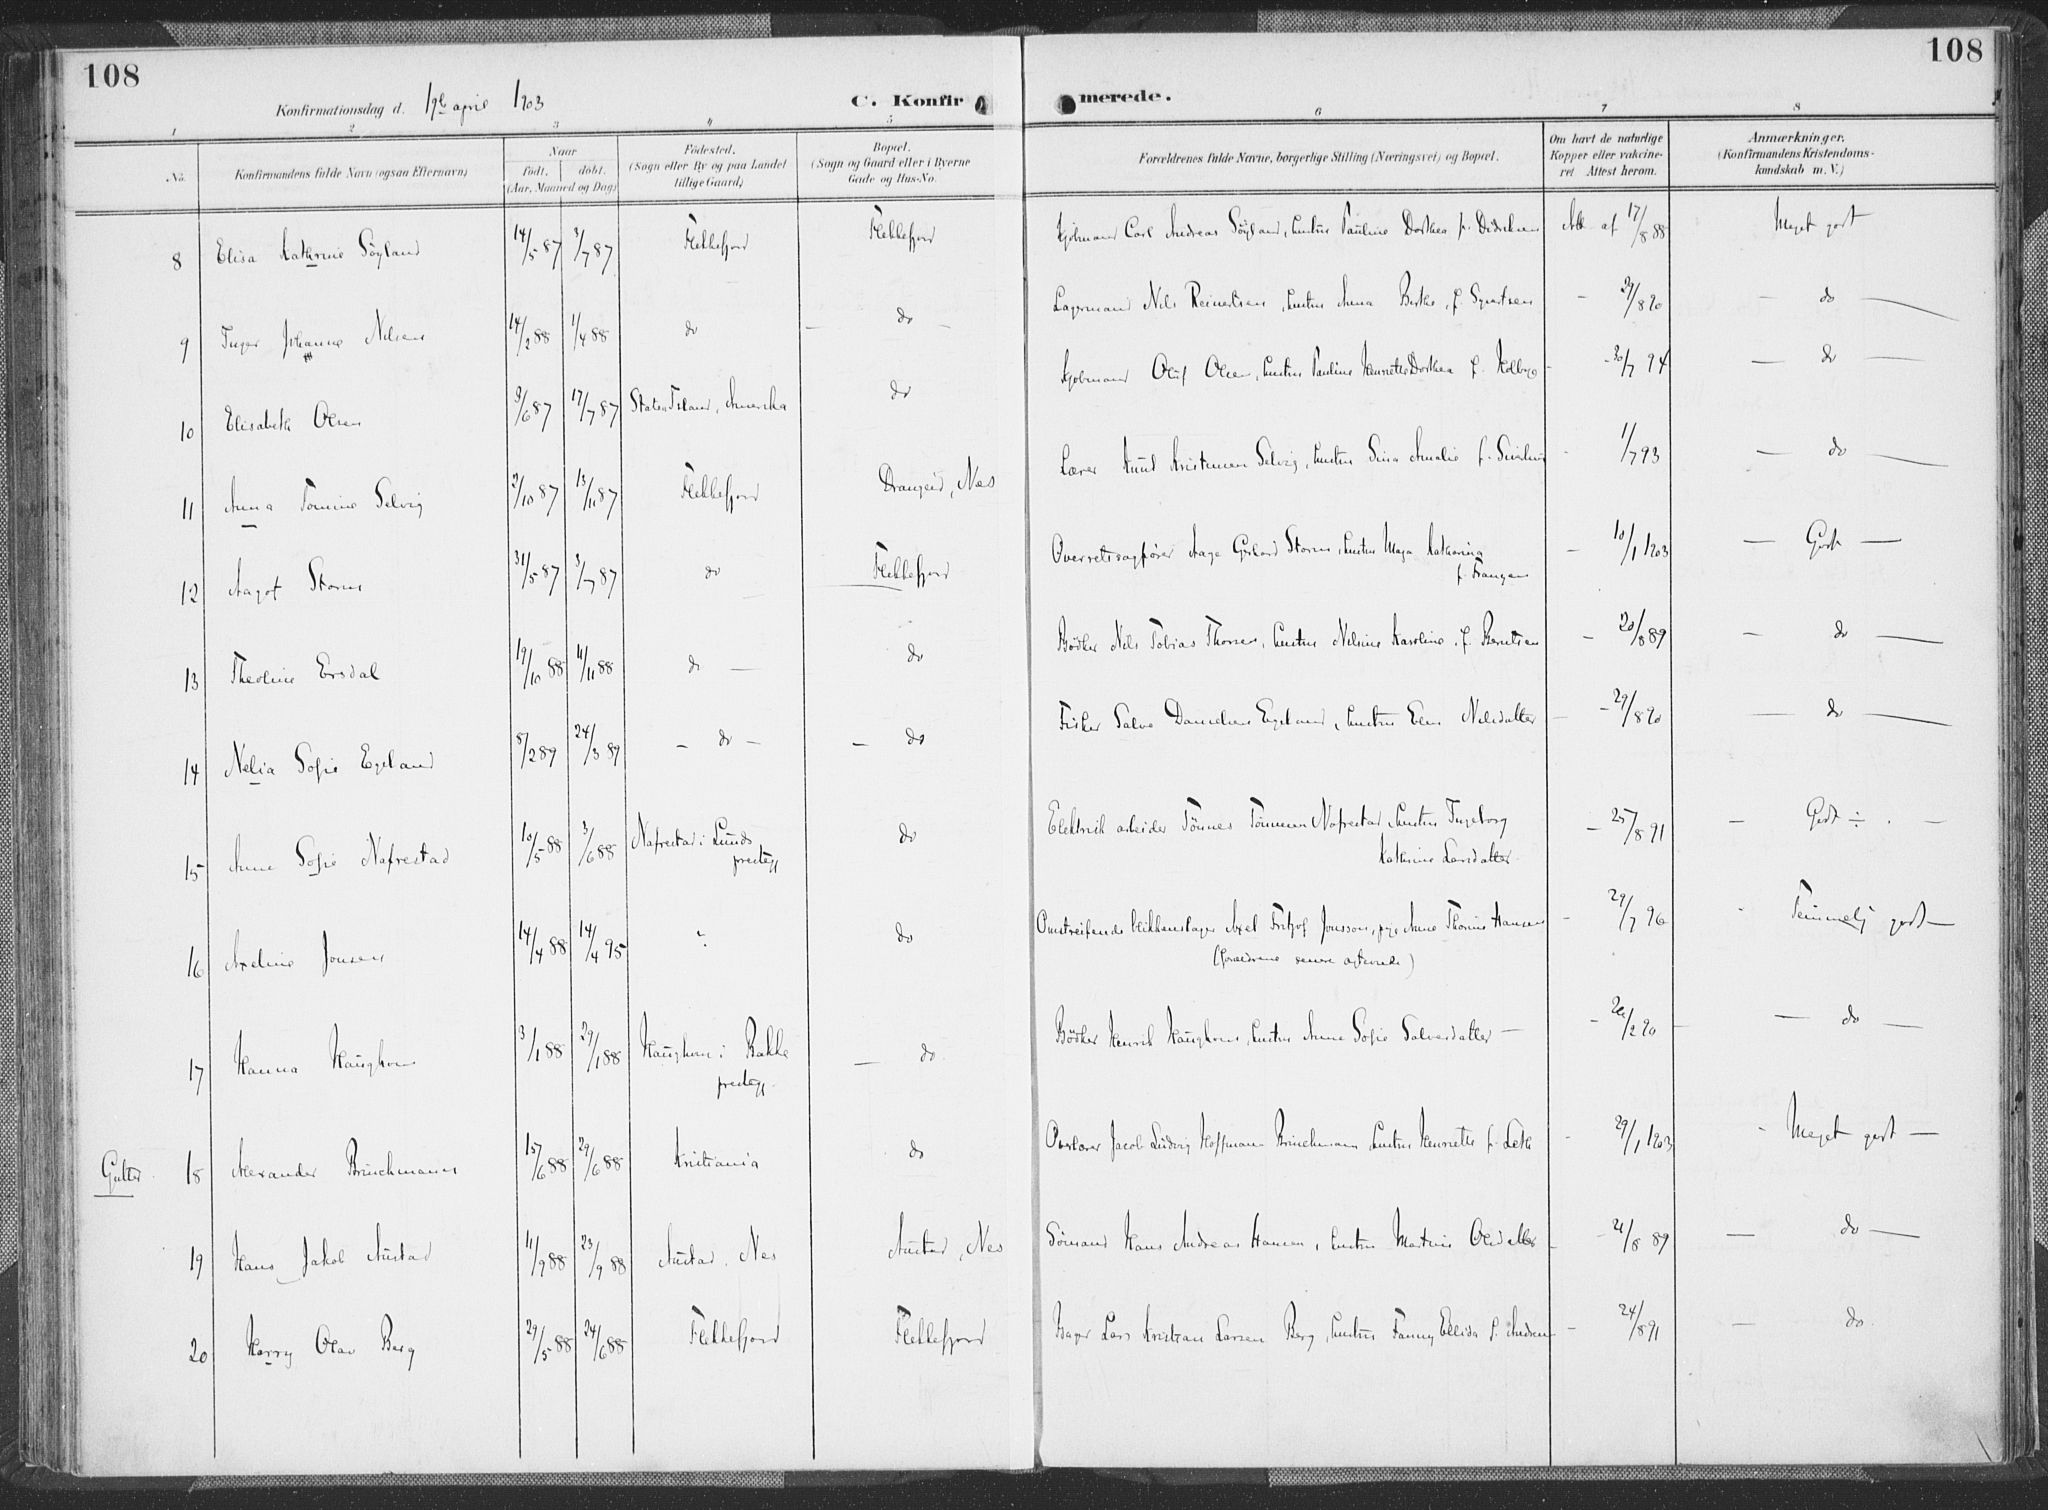 108
108
Konfirmationsdag d. 19de april 1903
C. Konfirmerede.
1 2 3 4 5 6 7 8
No.
Konfirmandens fulde Navn (ogsaa Efternavn)
Naar
født. døbt.
(Aar, Maaned og Dag)
Fødested.
(Sogn eller By og paa Landet
tillige Gaard)
Bopæl.
(Sogn og Gaard eller i Byerne
Gade og Hus-No.
Forældrenes fulde Navne, borgerlige Stilling (Næringsvei) og Bopæl.
Om havt de naturlige
Kopper eller vakcine-
ret Attest herom.
Anmærkninger.
(Konfirmandens Kristendoms-
kundskab m. V.)
8 Elisa Kathrine Söyland 14/5 87 3/7 87 Flekkefjord Flekkefjord Kjöbmand Carl Andreas Söyland, hustru Pauline Dorthea f. Didriksen Att. af 17/8 88 Meget godt
9 Inger Johanne Nilsen 14/2 88 1/4 88 do — do — Lagermand Nils Reinertsen, hustru Anna Berthe, f. Syvertsen - 29/8 90 — do —
10 Elisabeth Olsen 9/6 87 17/7 87 Staten Island, Amerika do Kjöbmand Oluf Olsen, hustru Pauline Henriette Dorthea f. Kolbye - 30/7 94 — do —
11 Anna Tomine Selvig 2/10 87 13/11 87 Flekkefjord Drangeid, Nes Lærer Knut Kristensen Selvig, hustru Sina Amalie f. - 1/7 93 — do —
12 Aagot Storm 31/5 87 3/7 87 do Flekkefjord Overretssagförer Aage Gerhard Storm, hustru Maja Katharina
f. Frangen — 10/1 1903 — Godt —
13 Theoline Ersdal 19/10 88 11/11 88 do — do Bödker Nils Tobias Thorsen, hustru Nilsine Karoline, f. Berntsen - 20/8 89 — do —
14 Nelia Sofie Egeland 8/2 89 24/3 89 — do — — do Fisker Salve Danielsen Egeland, hustru Elen Nilsdatter - 29/8 90 — do —
15 Anne Sofie Nafrestad 10/5 88 3/6 88 Nafrestad i Lunds
prestegj do Elektrik arbeider Tönnes Tönnesen Nafrestad, hustru Ingeborg
Kathrine Larsdatter - 25/8 91 — Godt ÷ . —
16 Axeline Jonsen 14/4 88 14/4 95 ? do Omstreifende blikkenslager Axel Fritjof Jonsson, pige Anne Thorine Hansen
(forældrene senere ægteviede) - 29/7 96 - Temmelig godt —
17 Hanna Haughom 3/1 88 29/1 88 Haughom i Bakke
prestegj. — do Bödker Henrik Haughom, hustru Anne Sofie Salvesdatter — - /2 90 — do —
Gutter. 18 Alexander Brinchmann 15/6 88 29/6 88 Kristiania do Overlærer Jacob Ludvig Hoffmann Brinchmann, hustru Henriette f. Leth - 29/1 1903 - Meget godt —
19 Hans Jakob Austad 11/9 88 23/9 88 Austad, Nes Austad, Nes Sömand Hans Andreas Hansen, hustru Martine Olsdatter - 21/8 89 — do —
20 Harry Olav Berg 29/5 88 24/6 88 Flekkefjord Flekkefjord Bager Lars Kristian Larsen Berg, hustru Fanny Ellida f. - 24/8 91 — do.